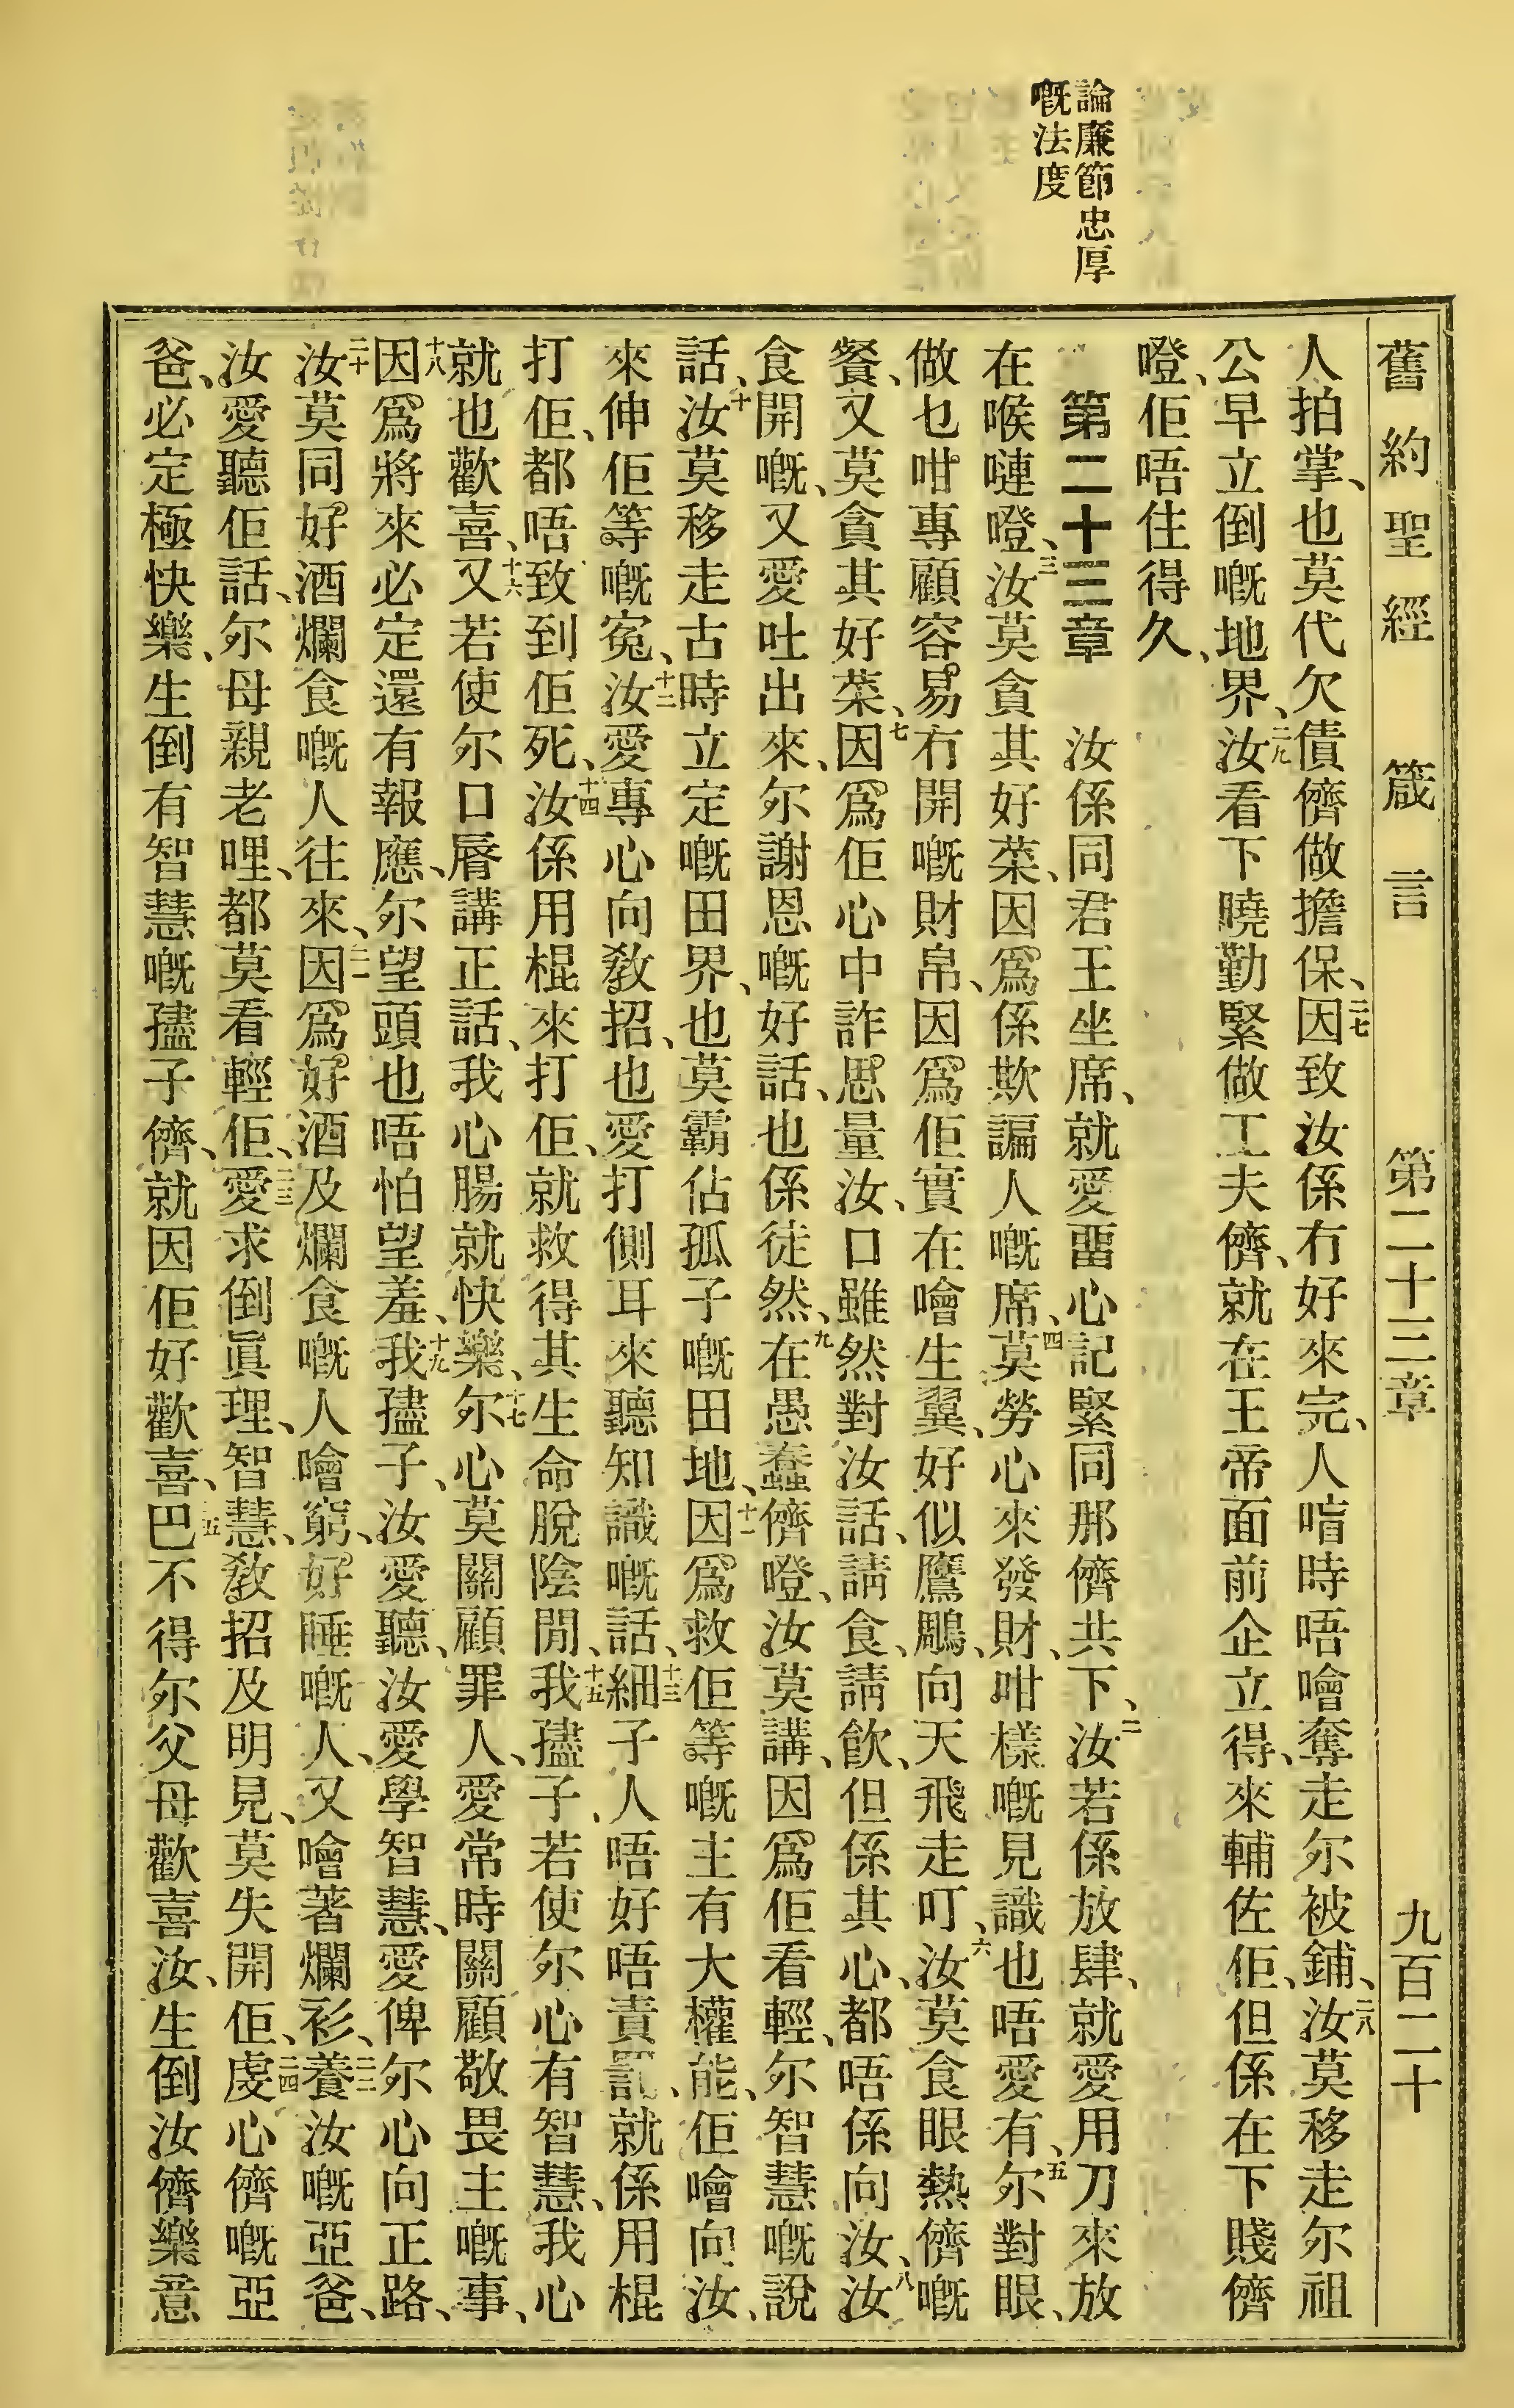 論廉節忠厚
嘅法度
舊約聖經 箴言 第二十三章 九百二十
人拍掌、也莫代欠債儕做擔保、二七因致汝係冇好來完、人㫮時唔噲奪走尔被鋪、二八汝莫移走尔祖
公早立倒嘅地界、二九汝看下曉勤緊做工夫儕、就在王帝面前企立得、來輔佐佢、但係在下賤儕
噔、佢唔住得久、
第二十三章 汝係同君王坐席、就愛畱心記緊同那儕共下、二汝若係放肆、就愛用刀來放
在喉嗹噔、三汝莫貪其好菜、因爲係欺諞人嘅席、四莫勞心來發財、咁樣嘅見識也唔愛有、五尔對眼、
做乜咁專顧容易冇開嘅財帛、因爲佢實在噲生翼、好似鷹鵰、向天飛走叮、六汝莫食眼熱儕嘅
餐、又莫貪其好菜、七因爲佢心中詐思量汝、口雖然對汝話、請食、請飮、但係其心、都唔係向汝、八汝
食開嘅、又愛吐出來、尔謝恩嘅好話、也係徒然、九在愚蠢儕噔、汝莫講、因爲佢看輕、尔智慧嘅說
話、十汝莫移走古時立定嘅田界、也莫霸佔孤子嘅田地、十一因爲救佢等嘅主有大權能、佢噲向汝、
來伸佢等嘅冤、十二汝愛專心向敎招、也愛打側耳來聽知識嘅話、十三細子人唔好唔責罰、就係用棍
打佢、都唔致到佢死、十四汝係用棍來打佢、就救得其生命脫陰間、十五我孻子、若使尔心有智慧、我心
就也歡喜、十六又若使尔口唇講正話、我心腸就快樂、十七尔心莫關顧罪人、愛常時關顧敬畏主嘅事、
十八因爲將來必定還有報應、尔望頭也唔怕望羞、十九我孻子、汝愛聽、汝愛學智慧、愛俾尔心向正路、
二十汝莫同好酒爛食嘅人往來、二一因爲好酒及爛食嘅人噲窮、好睡嘅人、又噲著爛衫、二二養汝嘅亞爸、
汝愛聽佢話、尔母親老哩、都莫看輕佢、二三愛求倒眞理、智慧、敎招及明見、莫失開佢、二四虔心儕嘅亞
爸、必定極快樂、生倒有智慧嘅孻子儕、就因佢好歡喜、二五巴不得尔父母歡喜汝、生倒汝儕樂意